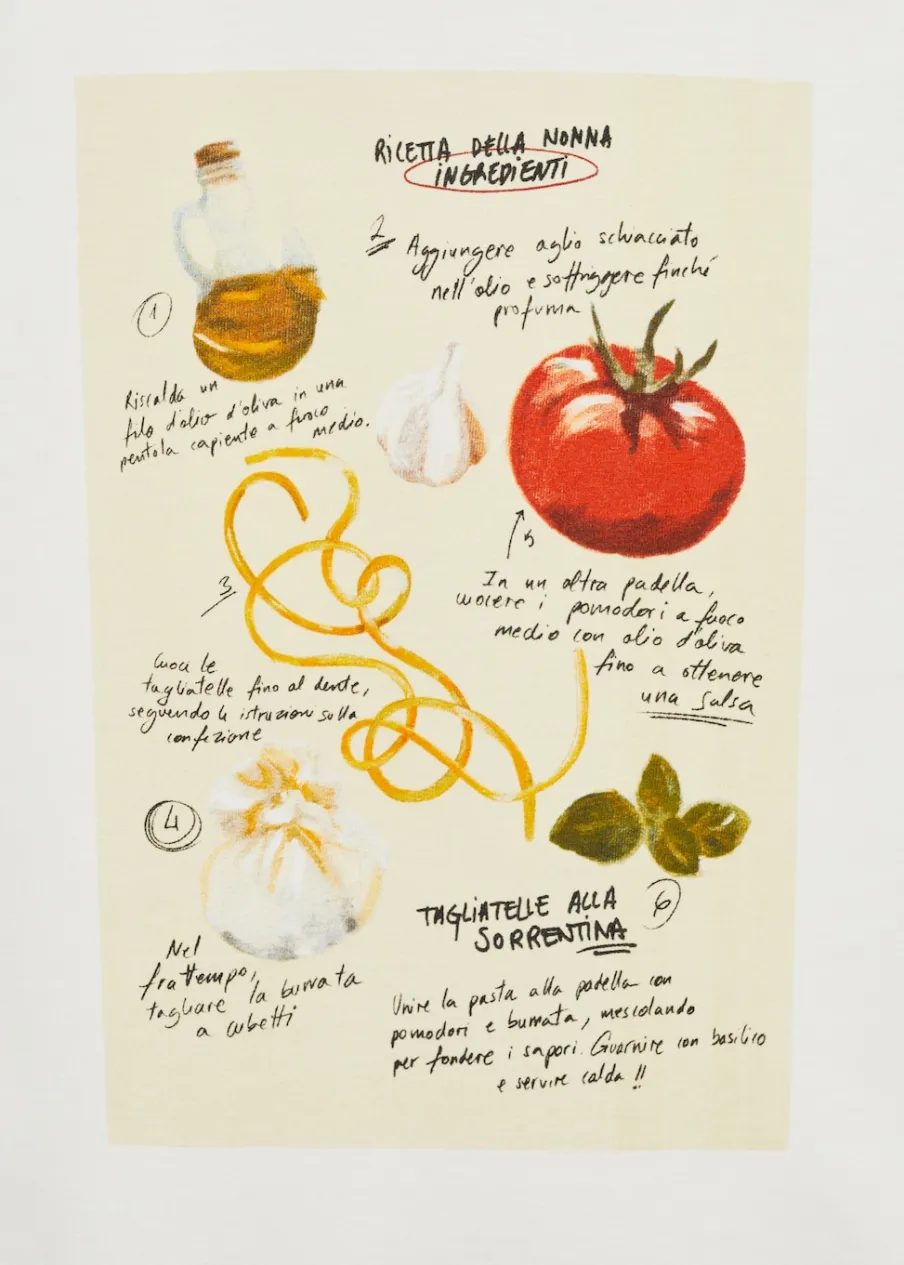 RICETTA DELLA NONNA
INGREDIENTI
1
Riscalda un
filo d'olio d'oliva in una
pentola capiente a fuoco
medio.
2
Aggiungere aglio schiacciato
nell'olio e soffriggere finché
profuma
3
Cuoci le
tagliatelle fino al dente,
seguendo le istruzioni sulla
confezione
4
Nel
frattempo,
tagliare la burrata
a cubetti
5
In un altra padella,
cuocere i pomodori a fuoco
medio con olio d'oliva
fino a ottenere
una salsa
6
TAGLIATELLE ALLA
SORRENTINA
Unire la pasta alla padella con
pomodori e burrata, mescolando
per fondere i sapori. Guarnire con basilico
e servire calda !!